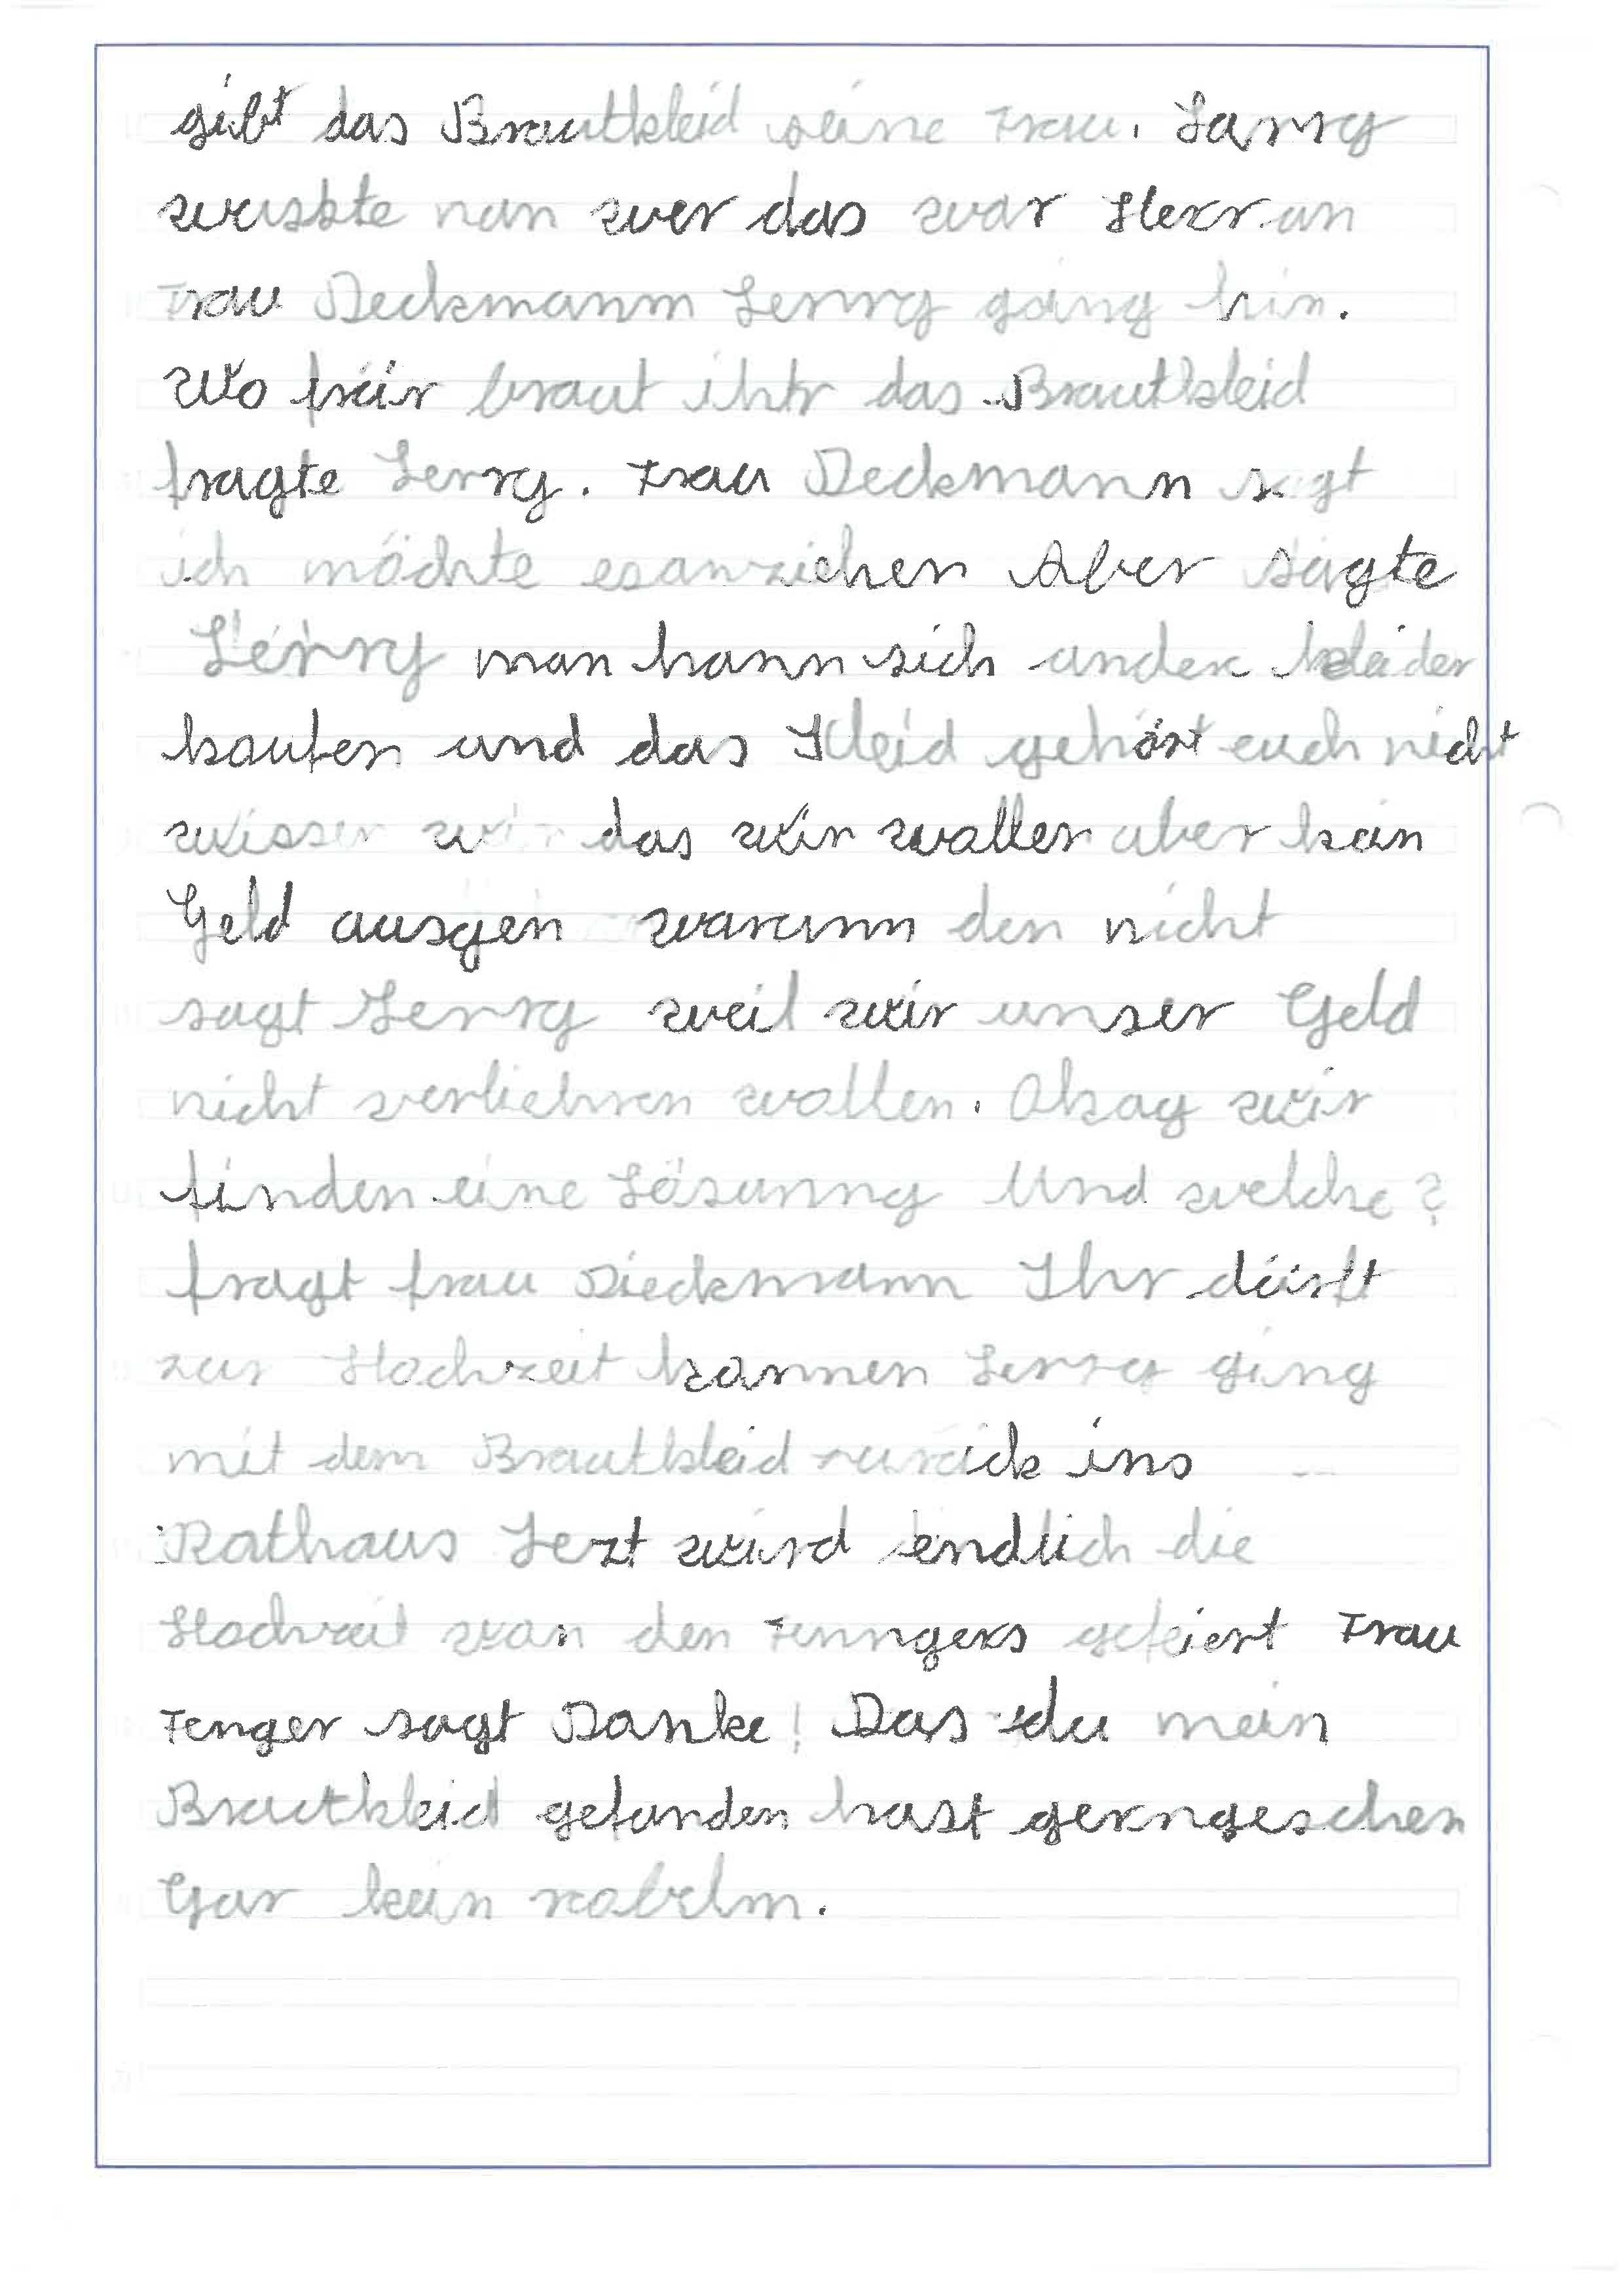 gibt das Brautkleid seine Frau. Jarry
wuskte nun wer das war Herr un
Frau Deckmann Jerry gaing hin.
Wo für braut ihtr das Brautkleid
fragte Jerry. Frau Deckmann sagt
ich möchte esanziehen Aber sagte
Jerry man kann sich ander kleider
kaufen und das Kleid gehört euch nicht
wissen wir das wir wollen aber kein
Geld ausgen warumm den nicht
sagt Jerry weil wir unser Geld
nicht verliehren wollen. Okay wir
finden eine Lösunng Und welche?
fragt frau Dieckmann Ihr dürft
zur Hochzeit kommen Jerry ging
mit dem Brautkleid zurück ins
Rathaus Jezt wird endlich die
Hochzeit von den Fenngers gefeiert Frau
Fenger sagt Danke! Das du mein
Brautkleid gefunden hast gerngeschen
Gar kein